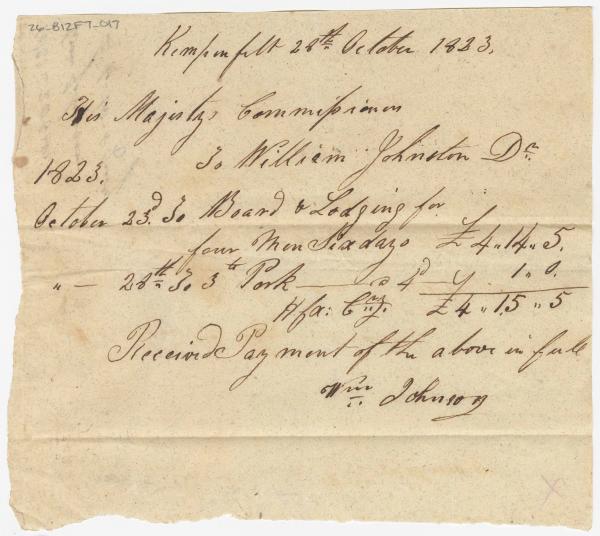 26-B12F7-017
Kempenfelt 28th October 1823.
His Majestys Commissioner
To William Johnston Dr.
1823.
October 23d. To Board & Lodging for
four Men Six days £ 4 " 14 " 5.
" — 28th To 3 lb Pork — 4d 1 " 0.
Hfx: Cy. £ 4 " 15 " 5
Received Payment of the above in full
Wm Johnson
X